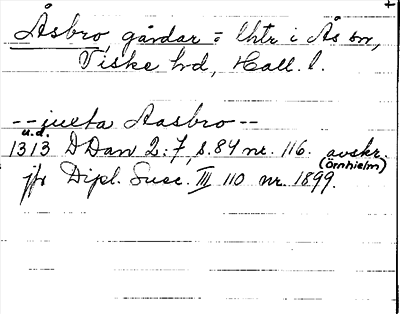 Åsbro, gårdar = Uhtr i Ås sn,
Viske hd, Hall. l.
--juxta Aasbro--
u.d.
1313 D Dan 2:7, s. 84 nr. 116. avskr.
(Örnhielm)
jfr Dipl. Suec. III 110 nr. 1899.